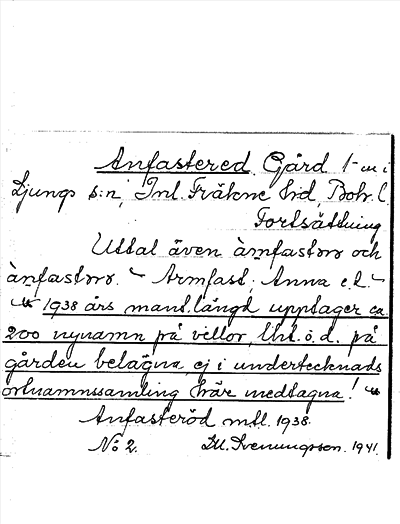 Anfastered, Gård 1-m i
Ljungs s:n, Inl. Fräkne Hd, Boh. l.
Fortsättning
Uttal även àmfastərə och
ànfastərə. ~ Armfast; Anna e.l. ~
1938 års mant.längd upptager ca
200 nynamn på villor, lht. ö.d. på
gården belägna, ej i undertecknads
ortnamnssamling här medtagna!
Anfasteröd mtl. 1938.
No 2. Svenungsson. 1941.